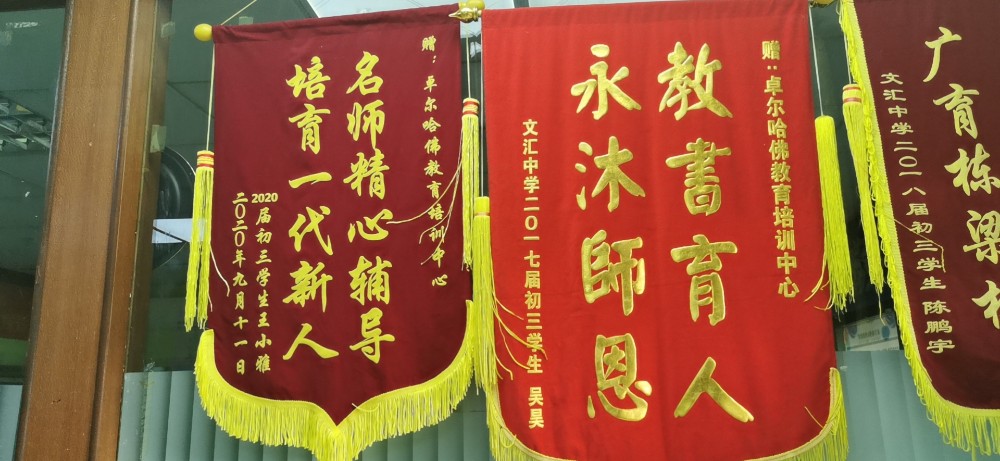 赠：卓尔哈佛教育培训中心
名师精心辅导
培育一代新人
2020届初三学生王小雅
二〇二〇年九月十一日
赠：卓尔哈佛教育培训中心
教書育人
永沐師恩
文汇中学二〇一七届初三学生 吴昊
广育栋梁
文汇中学二〇一八届初三学生 陈鹏宇